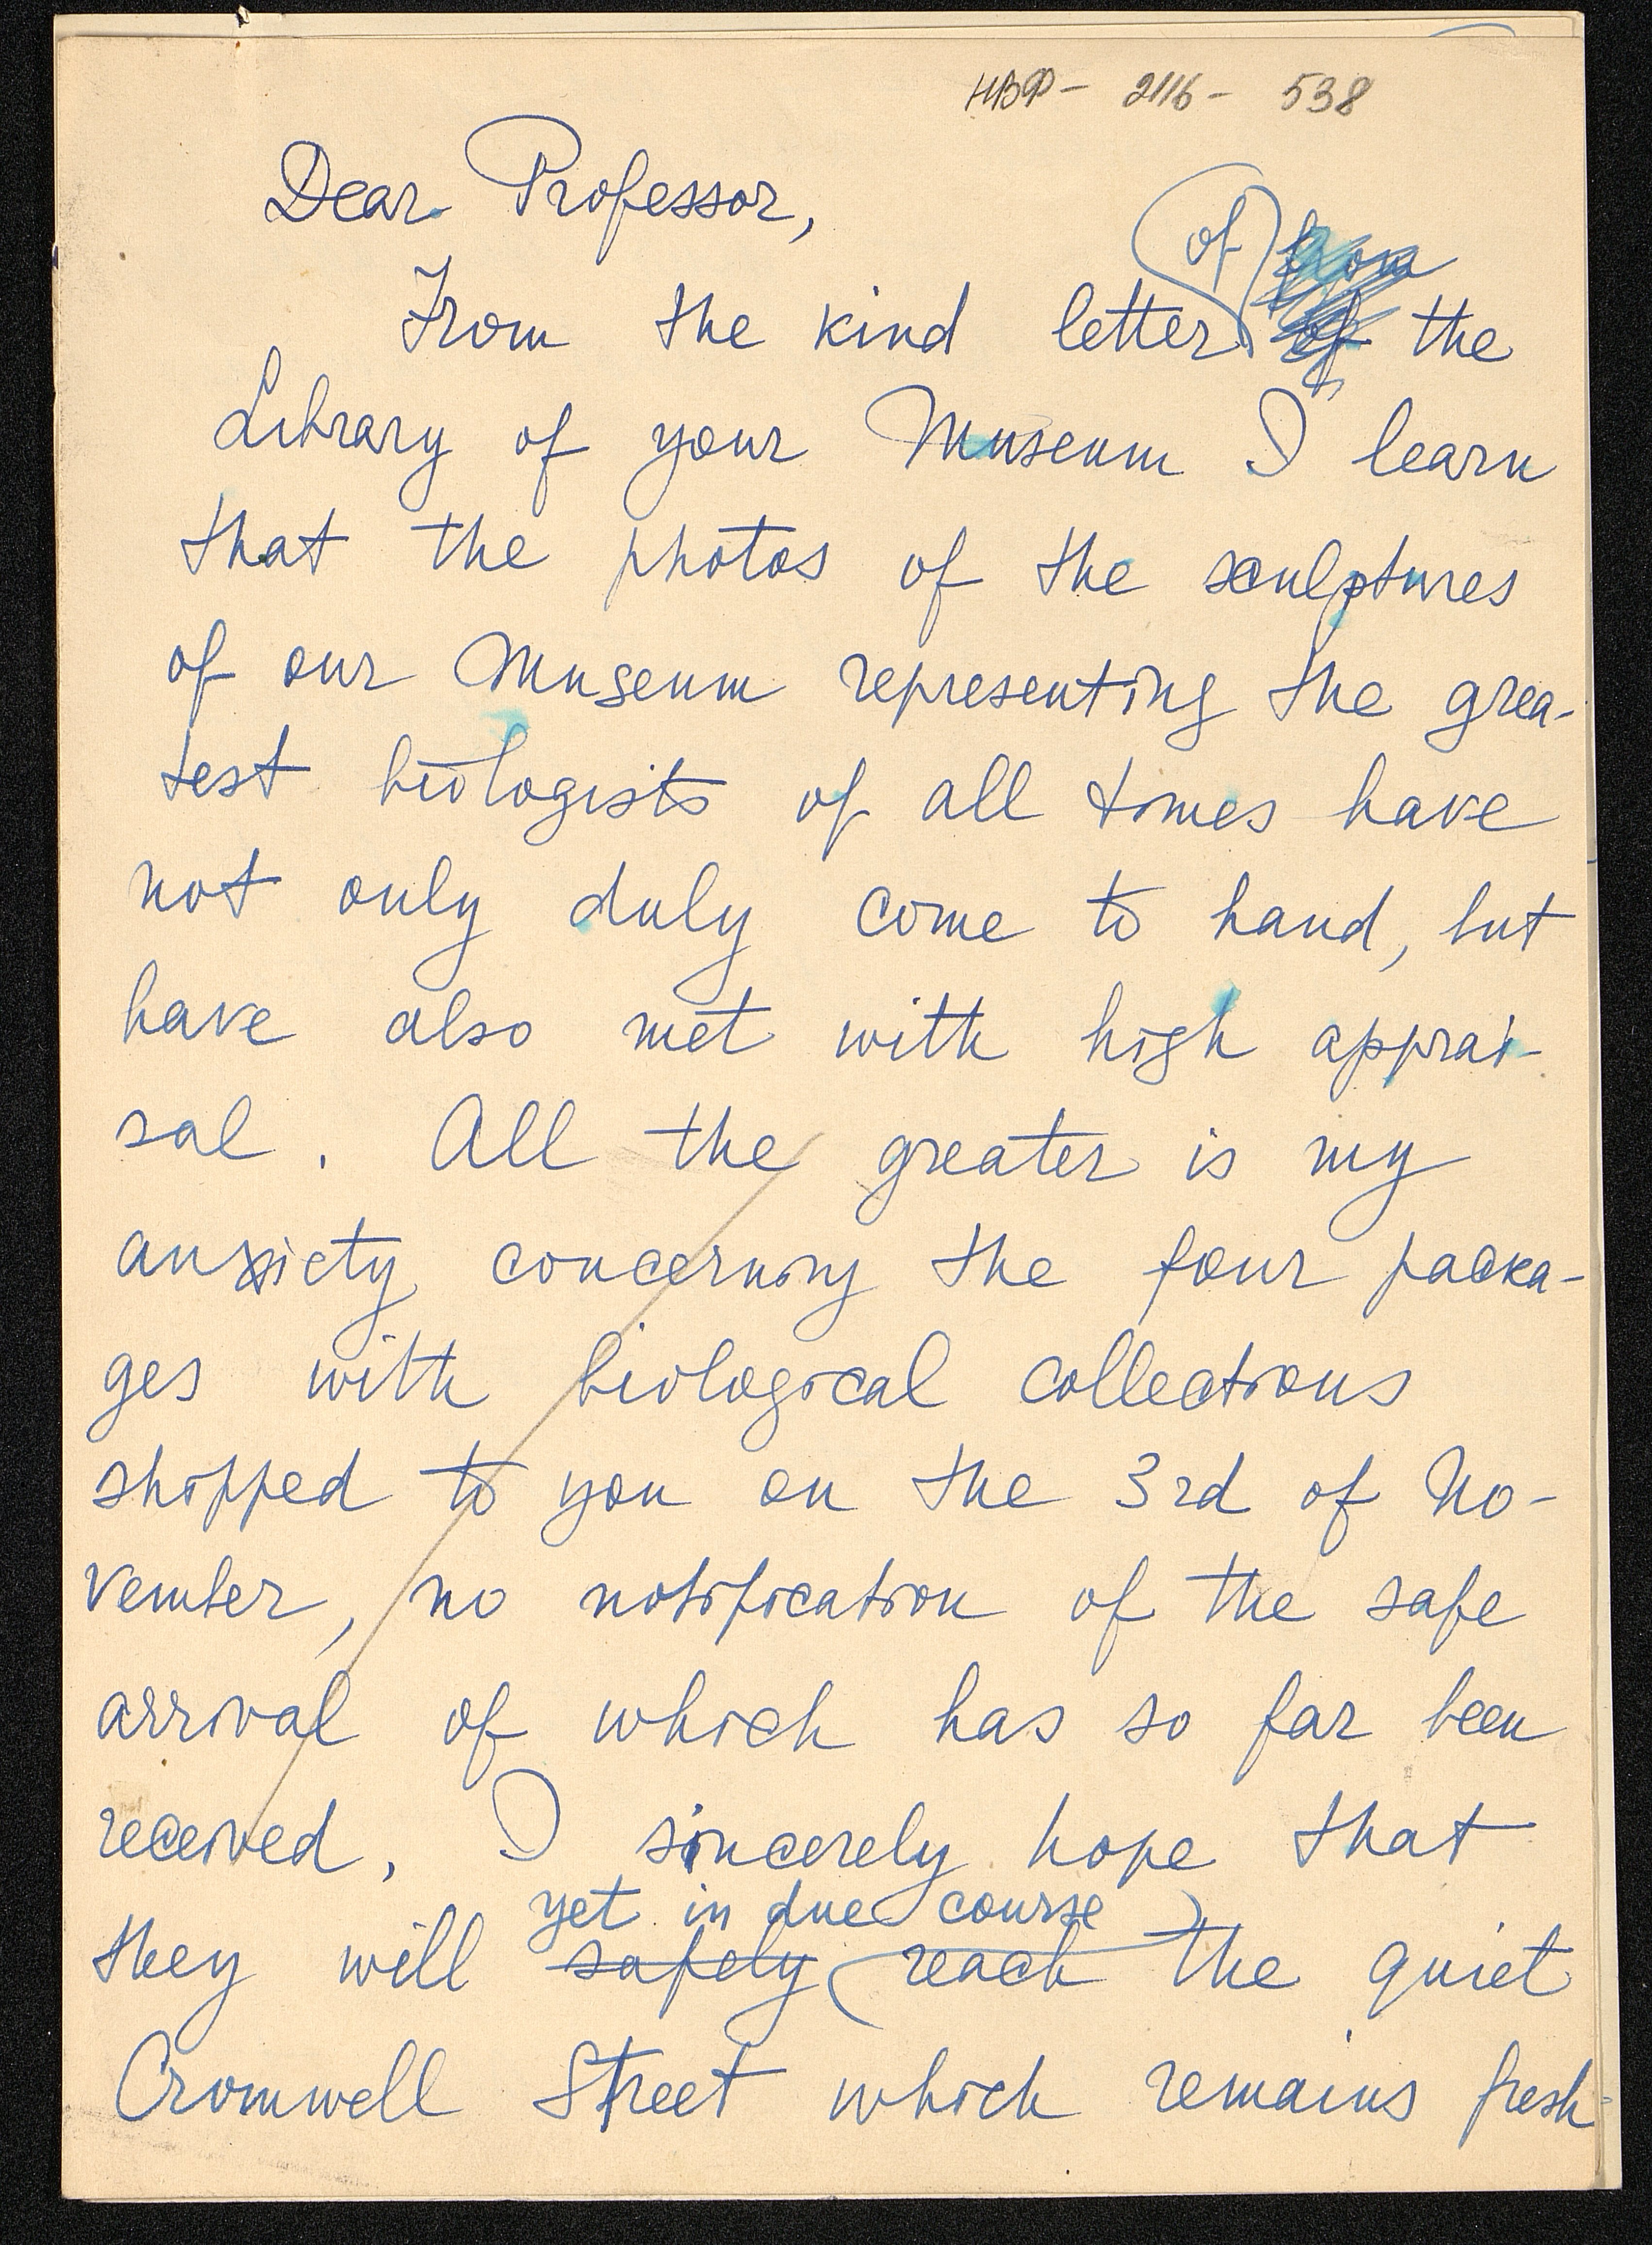 НВФ - 2116 - 538
Dear Professor,
of from
From the kind letter of the
Library of your Museum I learn
that the photos of the sculptures
of our Museum representing the grea-
test biologists of all times have
not only duly come to hand, but
have also met with high apprai-
sal. All the greater is my
anxiety concerning the four packa-
ges with biological collections
shipped to you on the 3rd of No-
vember, no notification of the safe
arrival of which has so far been
received. I sincerely hope that
yet in due course
they will safely reach the quiet
Cromwell Street which remains fresh